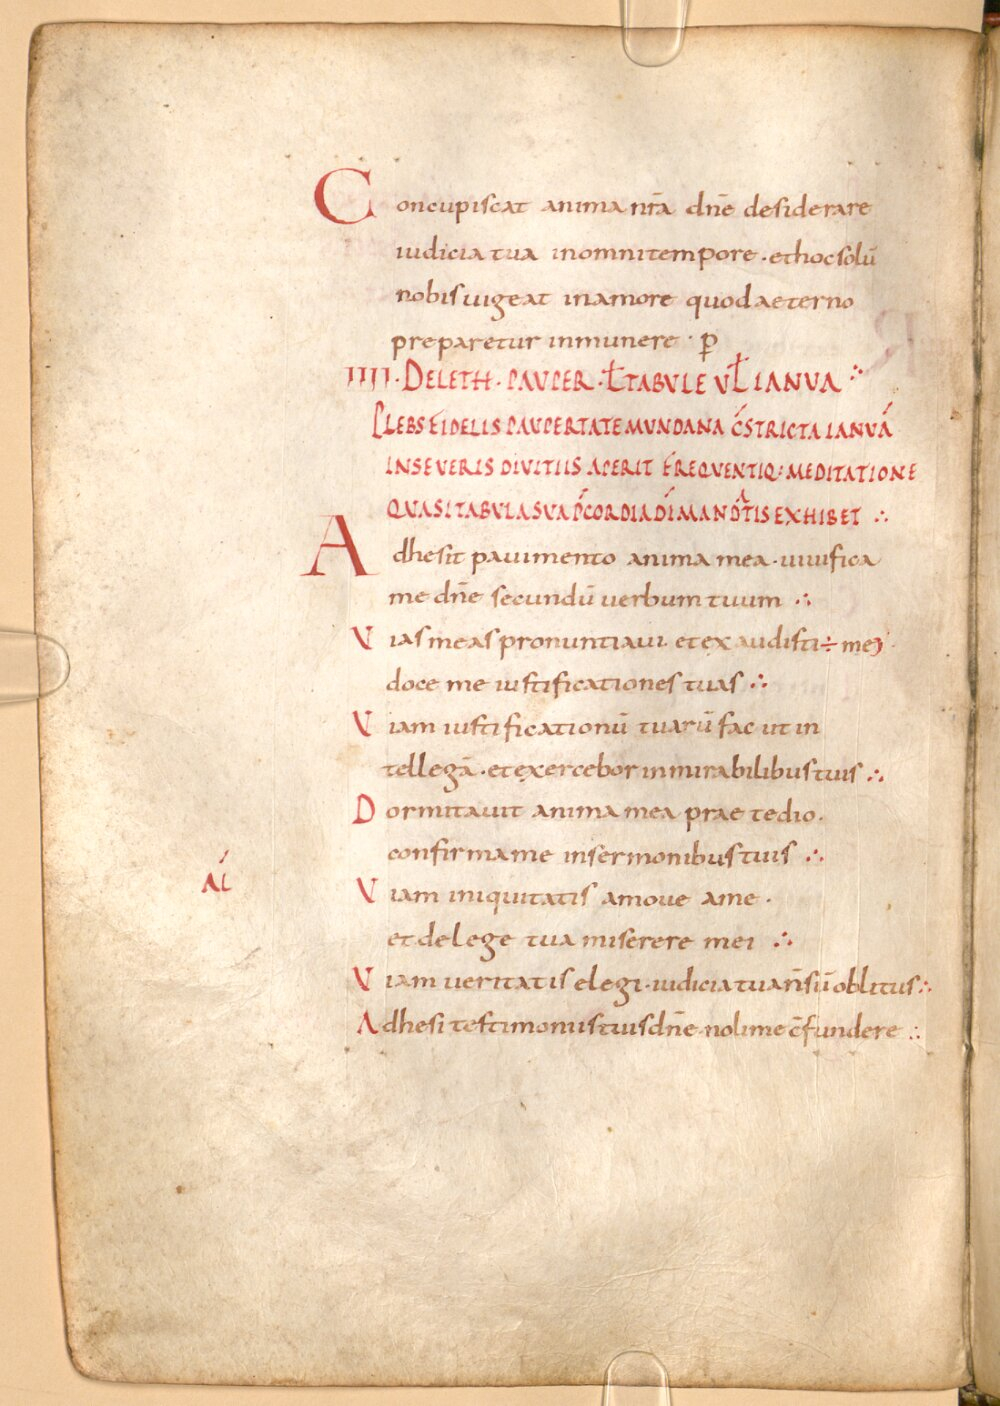 Concupiscat anima nr̄a dn̄e desiderare
iudicia tua inomnitempore · ethocsolū
nobisuigeat inamore quodaeterno
preparetur inmunere · p̄
IIII · DELETH · PAUPER · Ł TABULE UŁ IANUA ∴
PLEBS FIDELIS PAUPERTATE MUNDANA C̄STRICTA IANUÁ
INSEUERIS DIUITIIS APERIT FREQUENTIQ: MEDITATIONE
QUASI TABULA SUA P̄CORDIA DI MANDATIS EXHIBET ∴
Adhesit pauimento anima mea · uiuifica
me dn̄e secundū uerbum tuum ∴
Uias meas pronuntiaui · et ex audisti÷ me
doce me iustificationes tuas ∴
Uiam iustificationū tuarū fac ut in
tellegā · et exercebor inmirabilibus tuis ∴
Dormitauit anima mea prae tedio ·
confirmame insermonibus tuis ∴
AL
Uiam iniquitatis amoue ame ·
et delege tua miserere mei ∴
Uiam ueritatis elegi · iudicia tua n̄ sū oblitus ∴
Adhesi testimoniis tuis dn̄e · nolime c̄fundere ∴